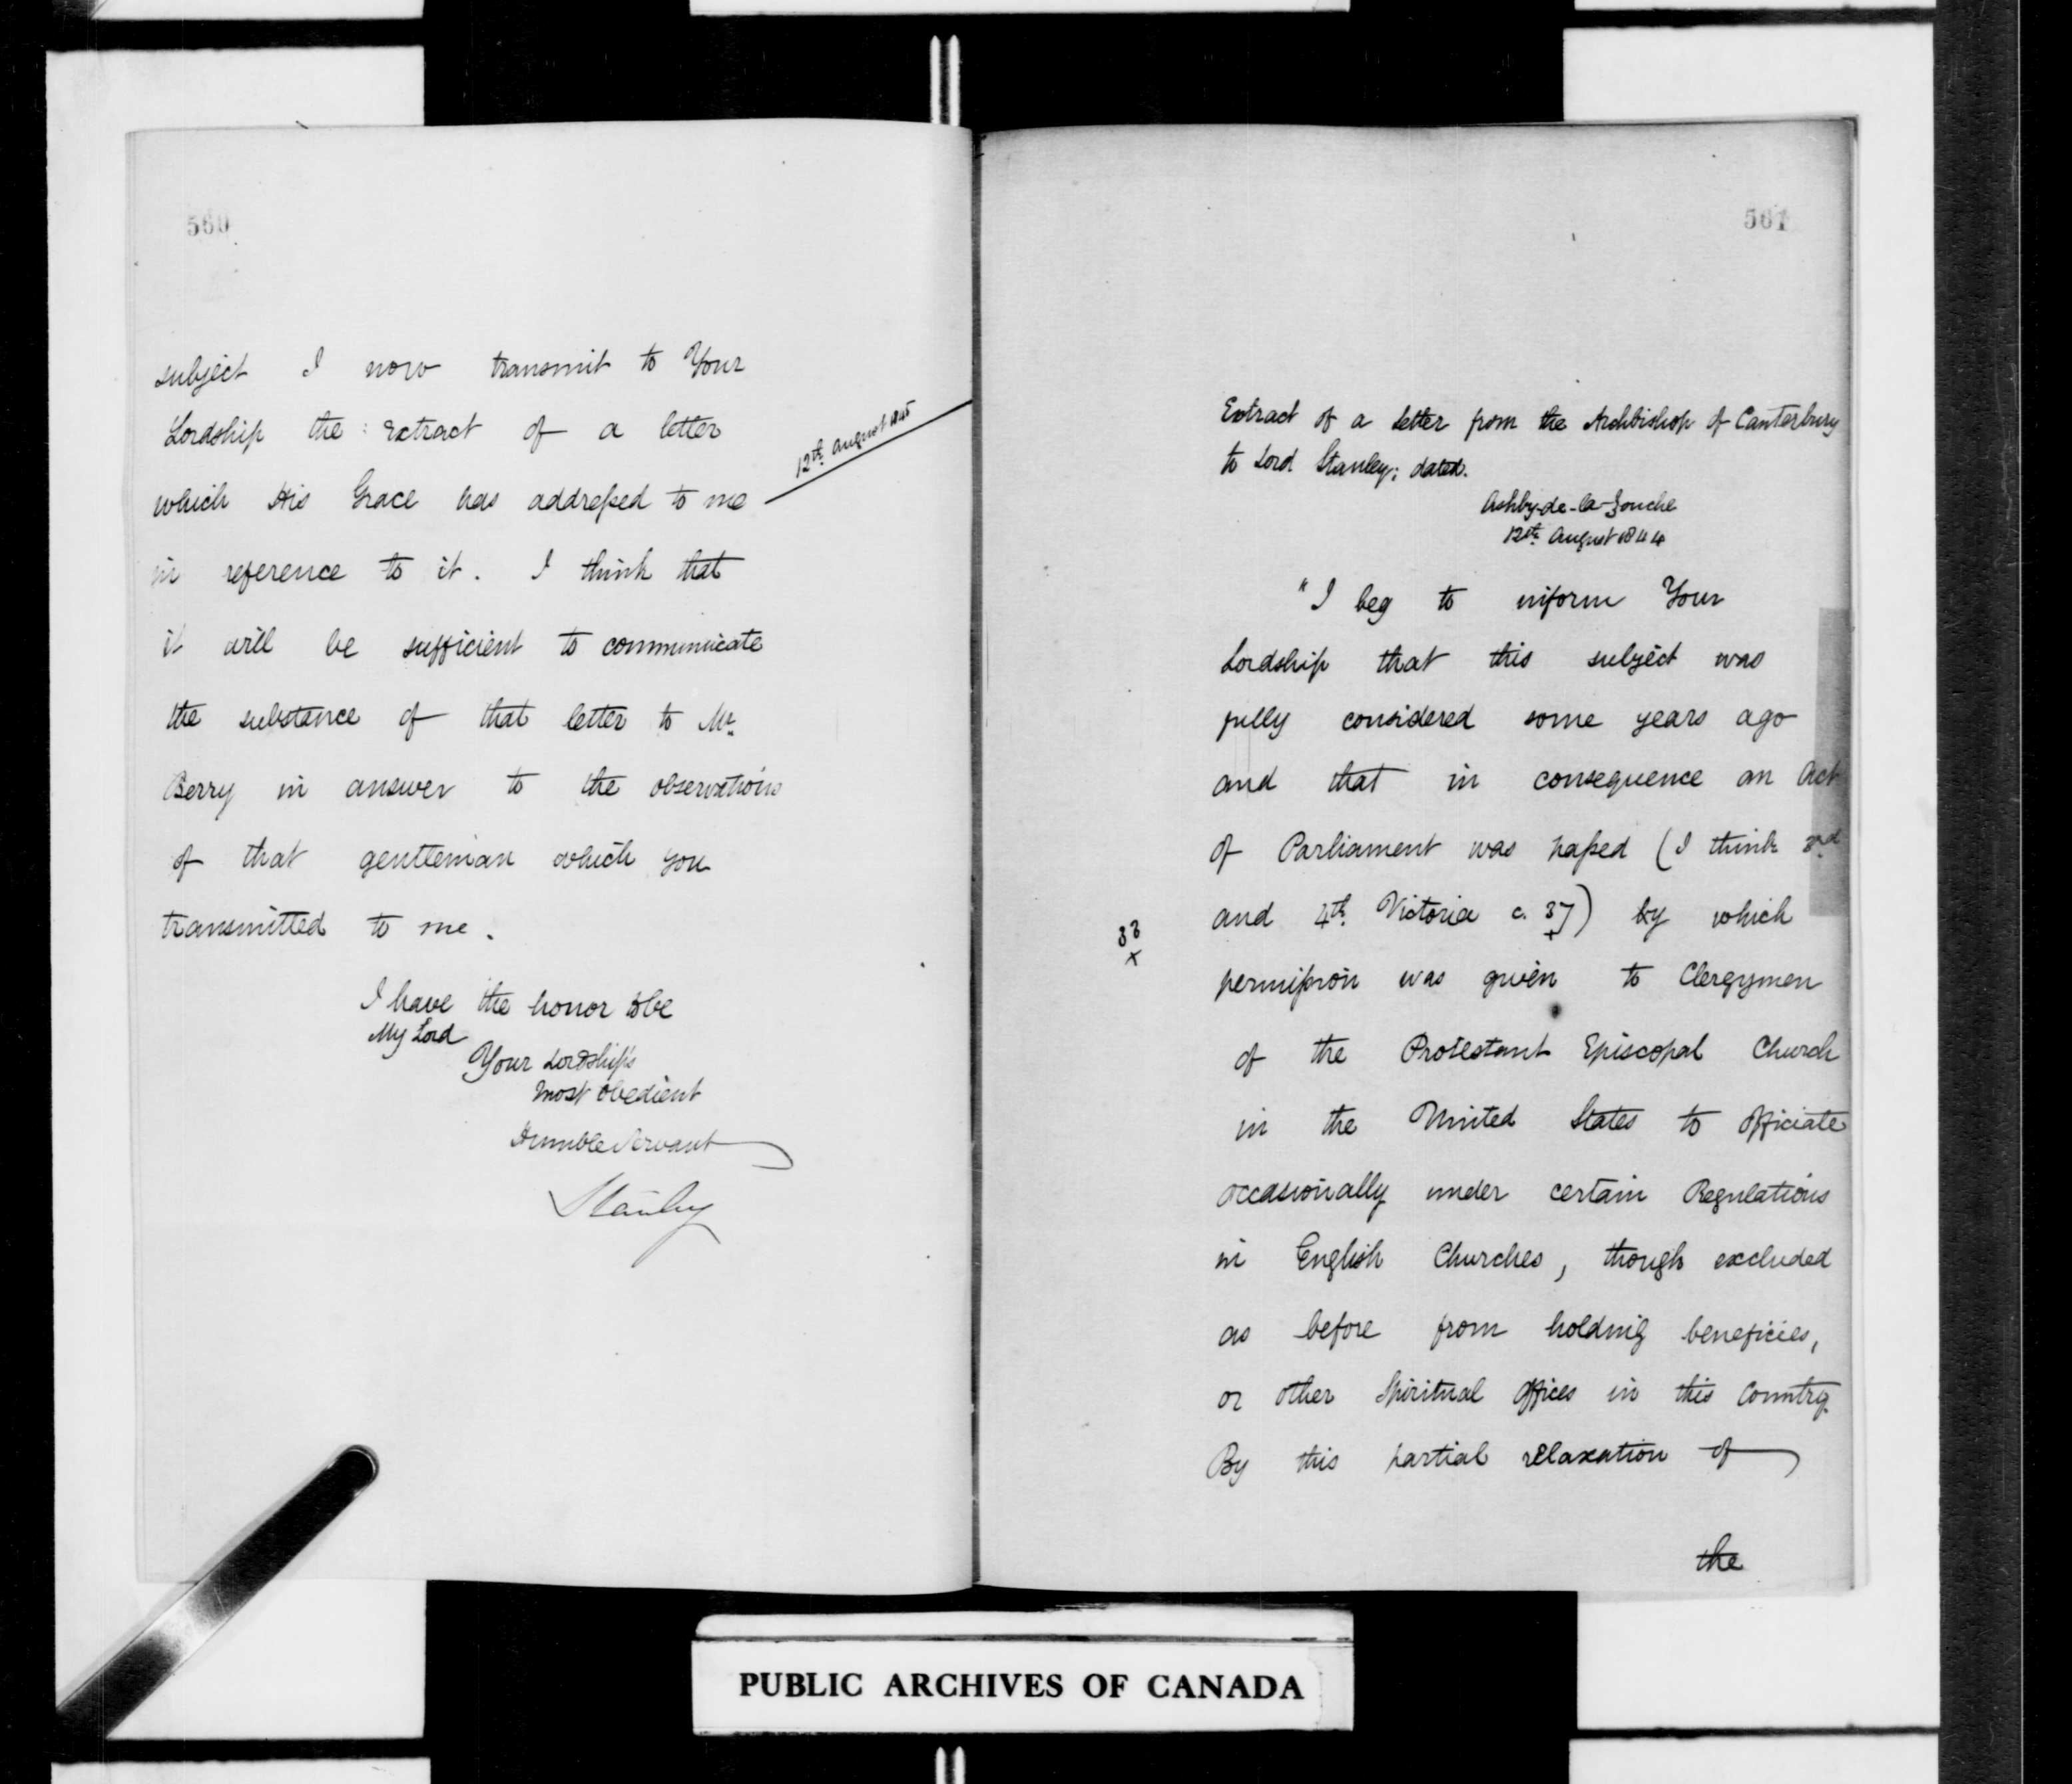 560
subject I now transmit to Your
Lordship the extract of a letter
which His Grace has addressed to me
12th August 1845
in reference to it. I think that
it will be sufficient to communicate
the substance of that letter to Mr
Berry in answer to the observations
of that gentleman which you
transmitted to me.
I have the honor to be
My Lord
Your Lordship's
most obedient
Humble Servant
Stanley
561
Extract of a letter from the Archbishop of Canterbury
to Lord Stanley; dated.
Ashby-de-la-Zouche
12th August 1844
"I beg to inform Your
Lordship that this subject was
fully considered some years ago
and that in consequence an Act
of Parliament was passed (I think 3rd
and 4th Victoria c. 37) by which
33
x
x
permission was given to Clergymen
of the Protestant Episcopal Church
in the United States to officiate
occasionally under certain Regulations
in English Churches, though excluded
as before from holding benefices,
or other Spiritual offices in this Country.
By this partial relaxation of
the
PUBLIC ARCHIVES OF CANADA